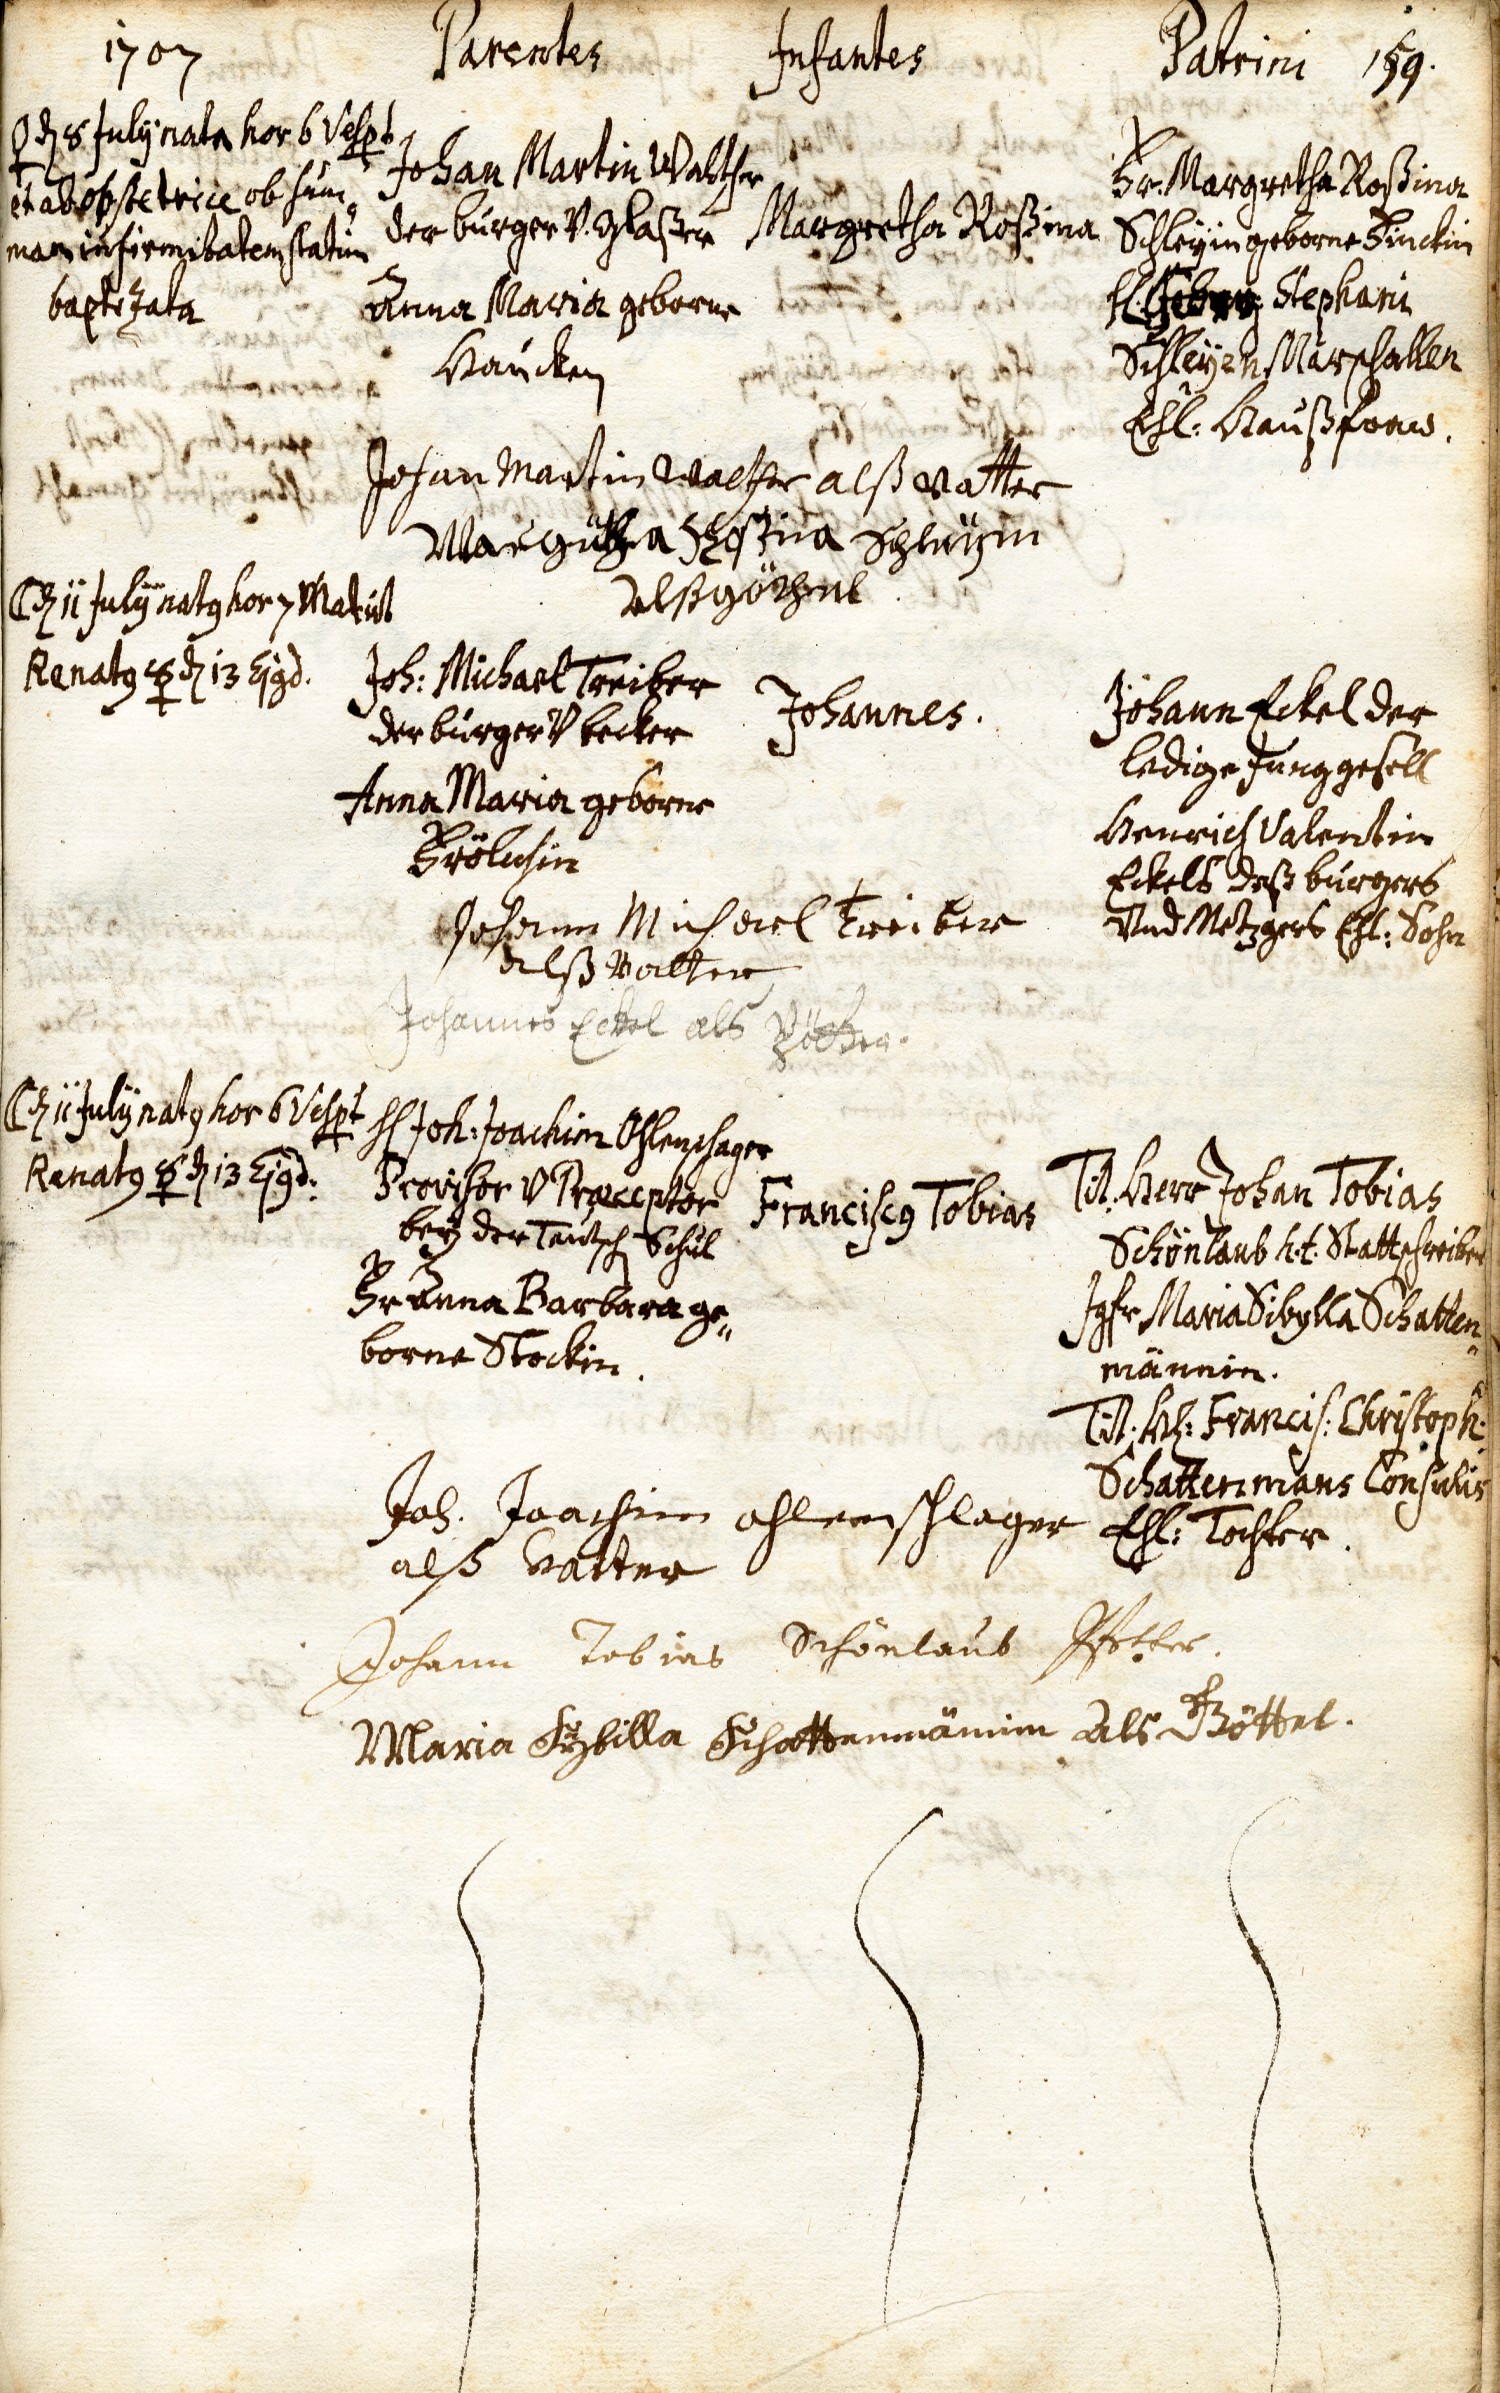 1707
Parentes
Infantes
Patrini 159.
♀ d 8 July nata hor 6 Vesp̱t
et ab obstetrice ob sum„
mam infirmitatem statim
baptizata
Johan Martin Walther
der burger V. Glaßer
Anna Maria geborne
Haucken
Margretha Roßina
Fr. Margretha Roßina
Schleyin geborne Finckin
H. Stephani
Schleyen Marschallen
Ehl: Haußfraw.
Johan Martin Walther alß Vatter
Margretha Roßina Schleyin
Alß göthel
☾ d 11 July nat9 hor 7 Matut
Renat9 ☿ d 13 Ejgd.
Joh: Michael Treiber
der burger V becker
Anna Maria geborne
Frölichin
Johannes.
Johann Eckel der
ledige Junggesell
Henrich Valentin
Eckels deß burgers
Vnd Metzgers Ehl: Sohn
Johann Michael Treiber
alß Vatter
Johannes Eckel als Pötter.
☾ d 11 July nat9 hor 6 Vesp̱t
Renat9 ☿ d 13 Ejgd:
H Joh: Joachim Ohlenschager
Provisor V Præceptor
bey der Teutsch Schul
Fr Anna Barbara ge„
borne Stockin.
Francisc9 Tobias
Tit. Herr Johan Tobias
Schönlaub h.t. Stattschreiber
Jgfr Maria Sibylla Schatten„
männin.
Tit. Hh: Francis: Christoph.
Schattenmans Consulis
Ehl: Tochter.
Joh. Joachim ohlenschlager
alß Vatter
Johann Tobias Schönlaub Pfetter.
Maria Sybilla Schattenmännin Als Göttel.